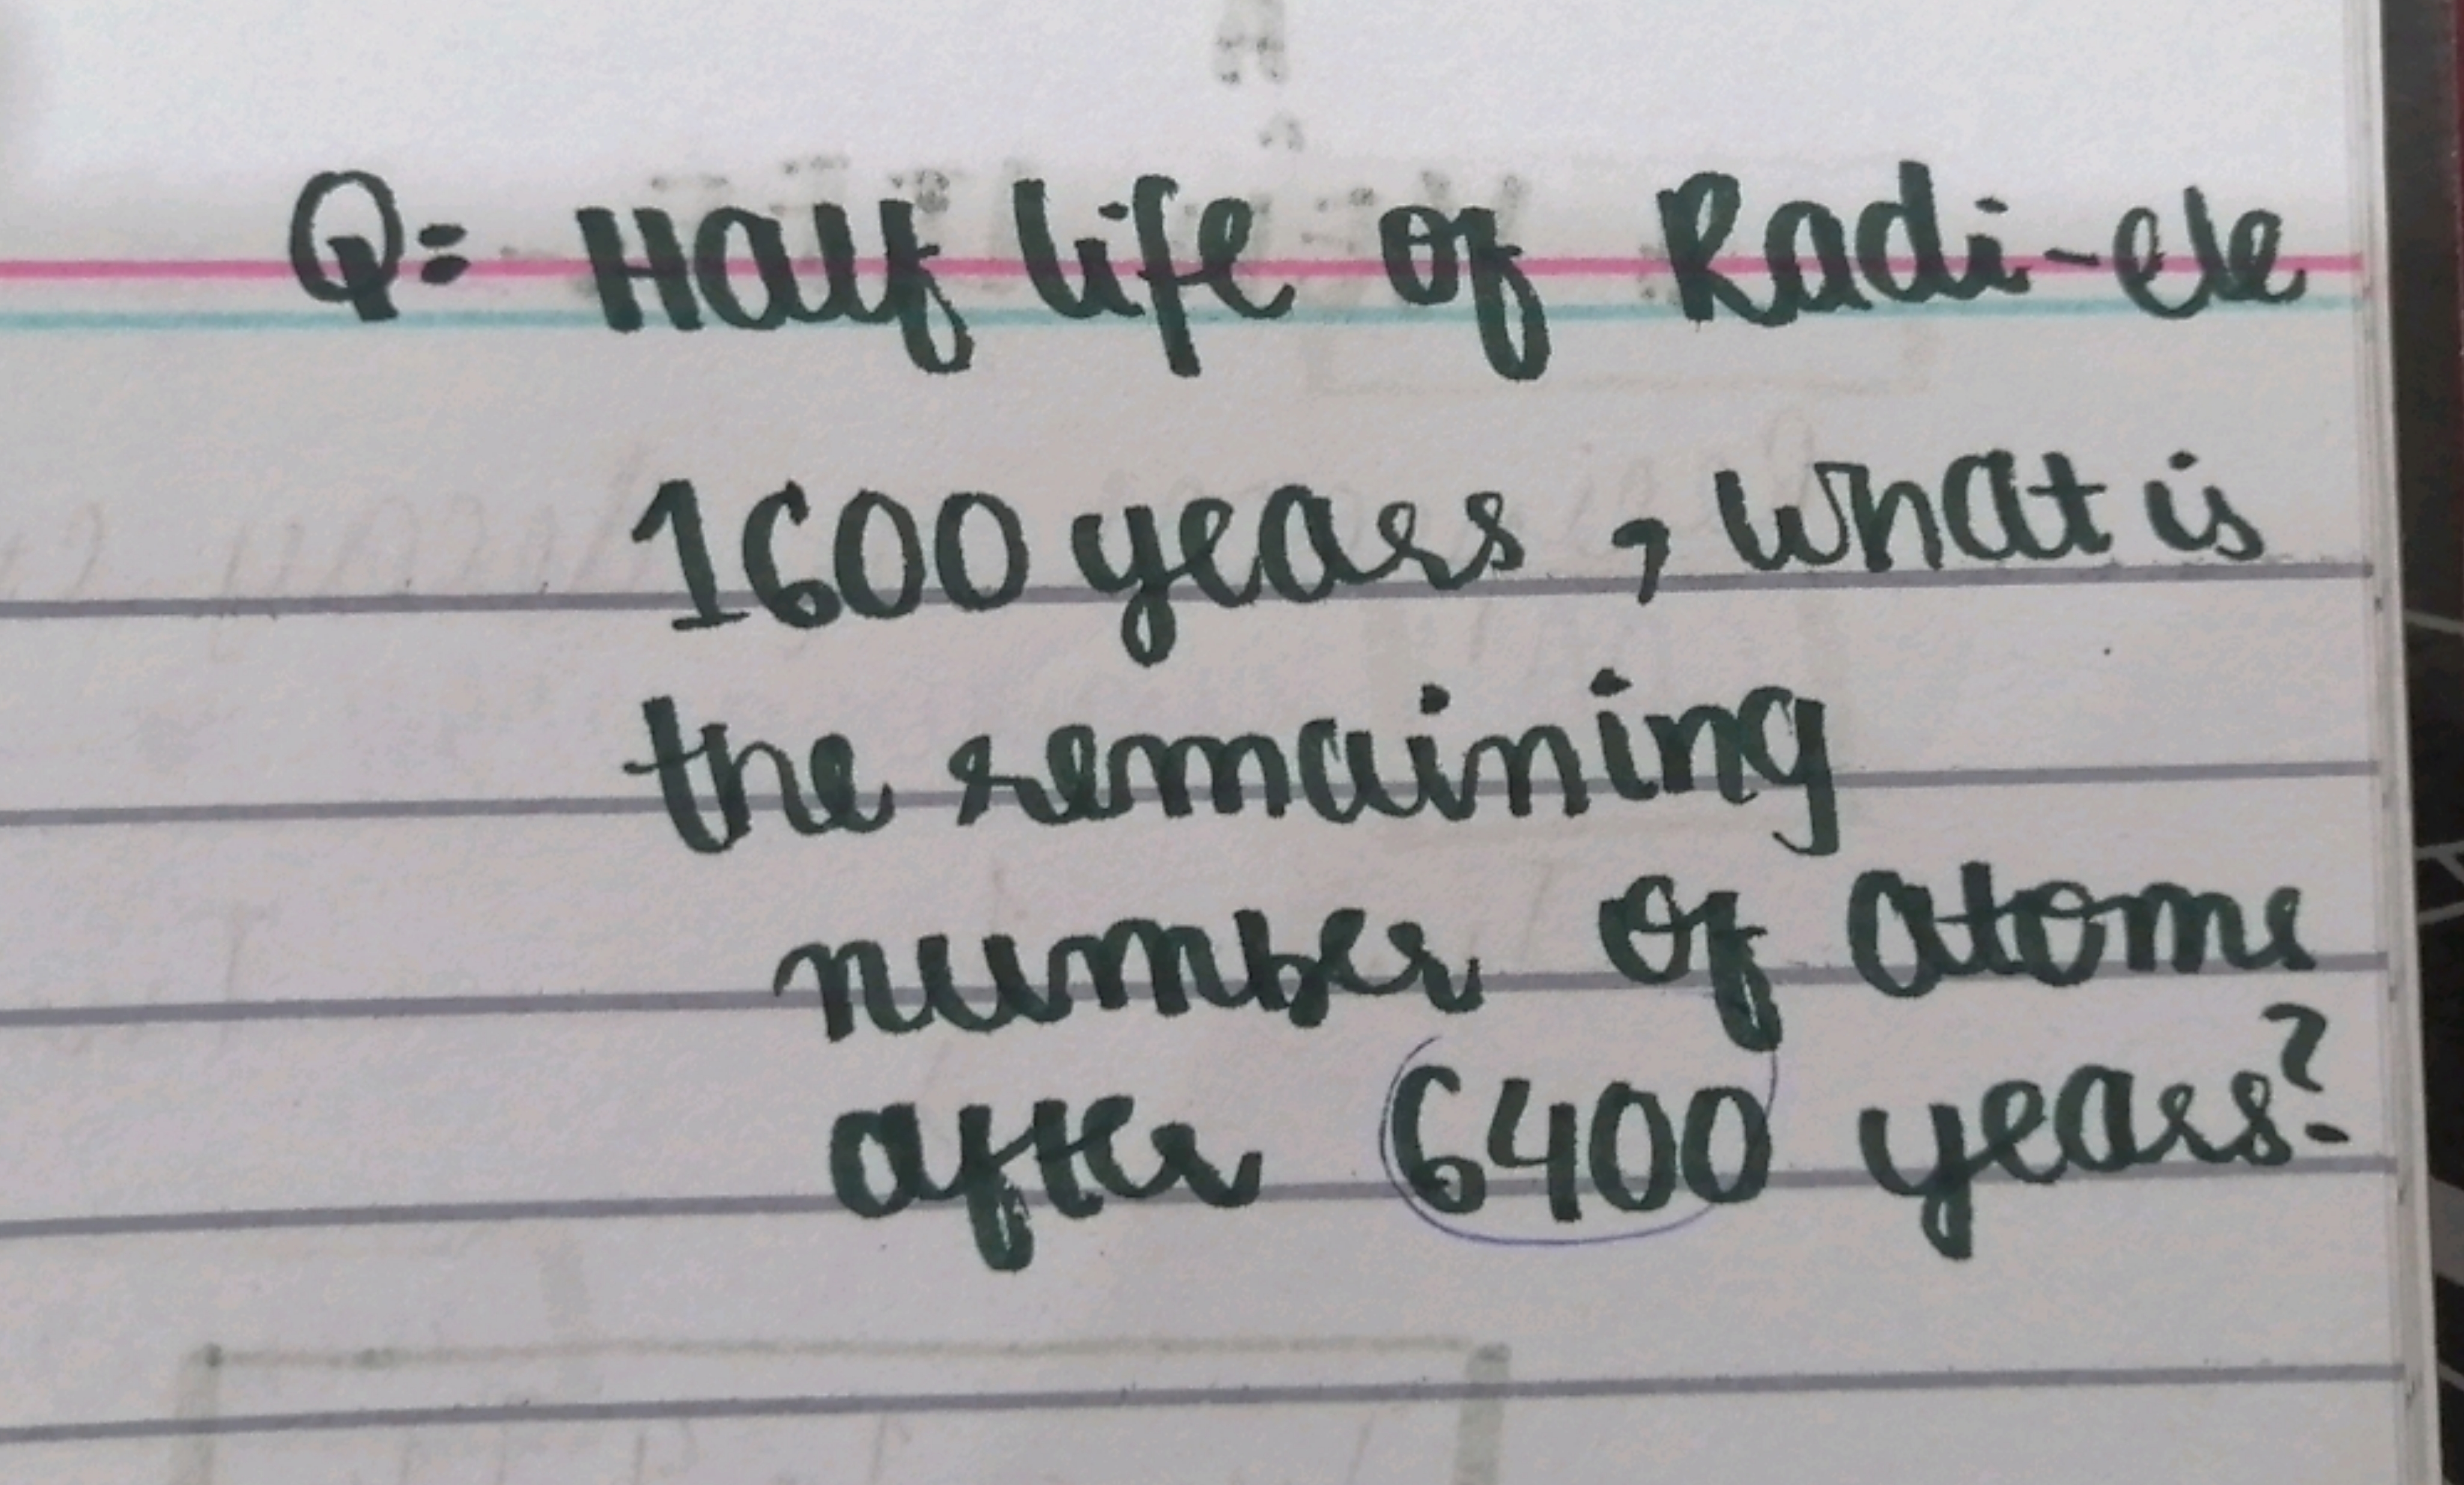 Q= Half life of Radi-ele
1600 years, what is
the remaining
number of atoms
after 6400 years?